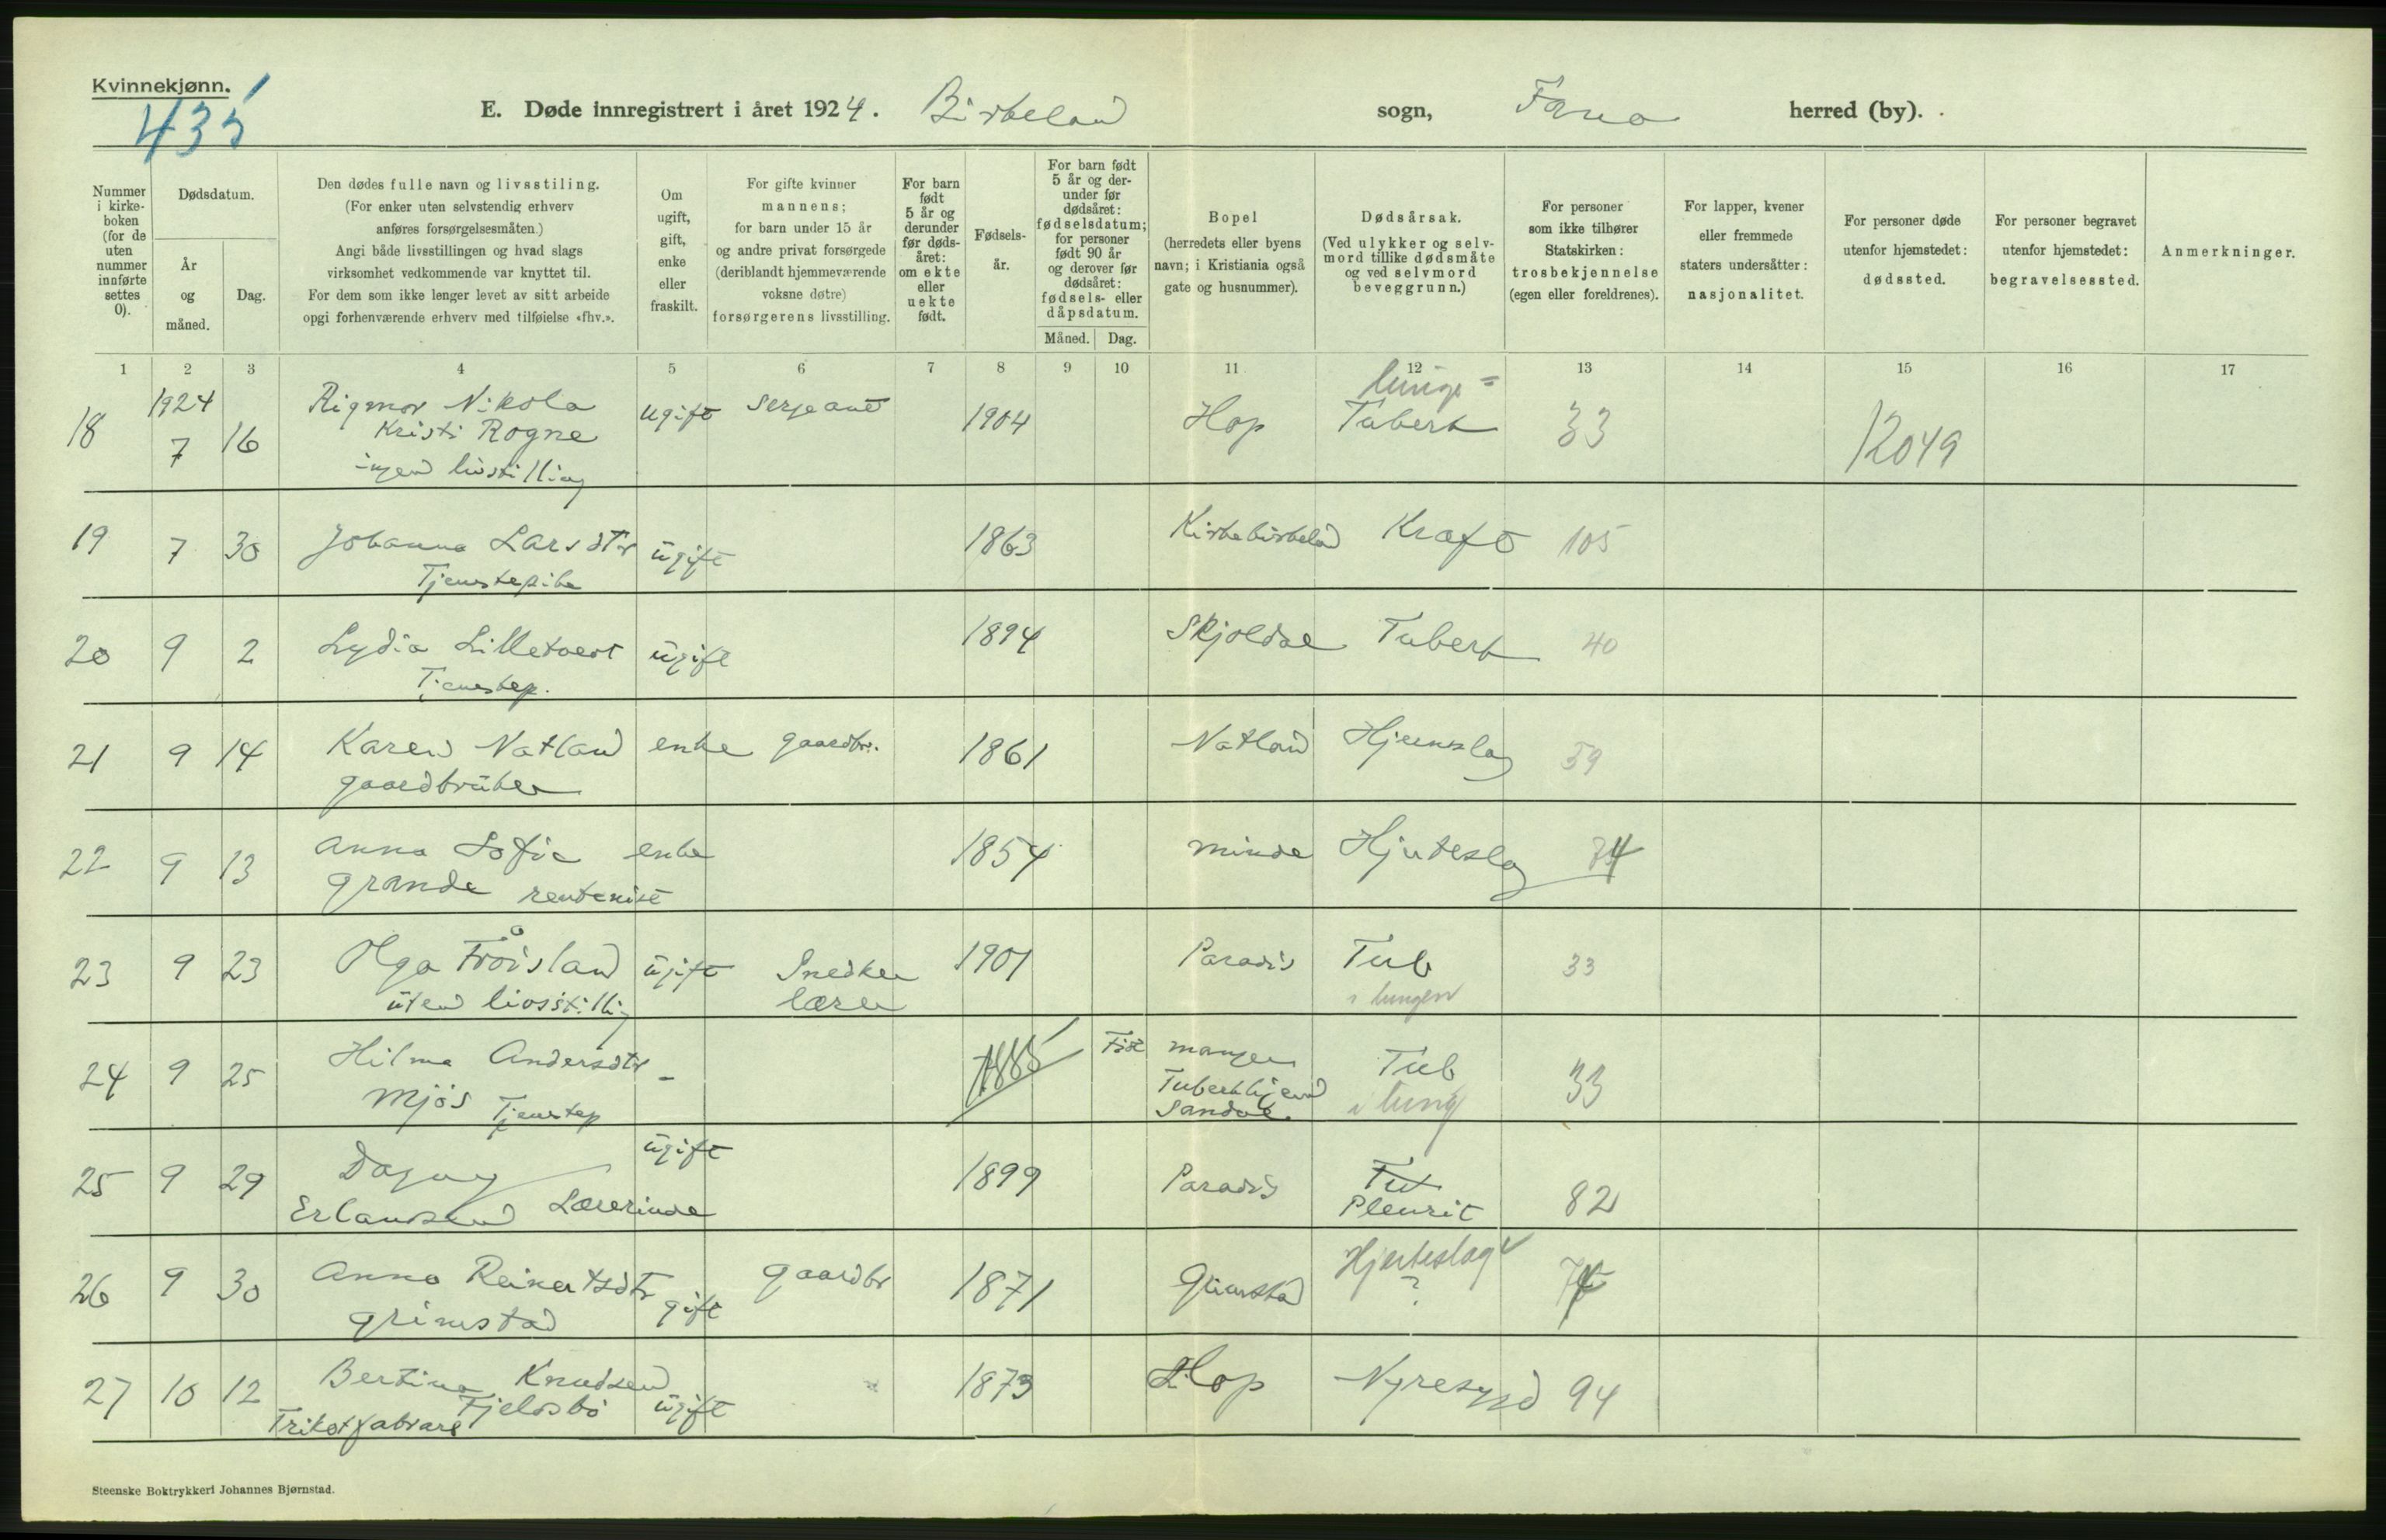 Kvinnekjønn.
435
E. Døde innregistrert i året 1924. Birkeland sogn, Fana herred (by).
Nummer i kirkeboken (for de uten nummer innførte settes 0).
Dødsdatum.
År og måned.
Dag.
Den dødes fulle navn og livsstiling.
(For enker uten selvstendig erhverv
anføres forsørgelsesmåten.)
Angi både livsstillingen og hvad slags
virksomhet vedkommende var knyttet til.
For dem som ikke lenger levet av sitt arbeide
opgi forhenværende erhverv med tilføielse «fhv.».
Om ugift, gift, enke eller fraskilt.
For gifte kvinner
mannens;
for barn under 15 år
og andre privat forsørgede
(deriblandt hjemmeværende
voksne døtre)
forsørgerens livsstilling.
For barn født 5 år og derunder før dødsåret: om ekte eller uekte født.
Fødselsår.
For barn født 5 år og derunder før dødsåret: fødselsdatum; for personer født 90 år og derover før dødsåret: fødsels- eller dåpsdatum.
Måned. Dag.
Bopel
(herredets eller byens
navn; i Kristiania også
gate og husnummer).
Dødsårsak.
(Ved ulykker og selvmord tillike dødsmåte
og ved selvmord
beveggrunn.)
For personer
som ikke tilhører
Statskirken:
trosbekjennelse
(egen eller foreldrenes).
For lapper, kvener
eller fremmede
staters undersåtter:
nasjonalitet.
For personer døde
utenfor hjemstedet:
dødssted.
For personer begravet
utenfor hjemstedet:
begravelsessted.
Anmerkninger.
1 2 3 4 5 6 7 8 9 10 11 12 13 14 15 16 17
18 1924 7 16 Rigmor Nikola ugift Serjeant 1904 Hop lunge= Tuberk 33 12049
Kristi Rogne
ingen livstilling
19 7 30 Johanna Larsdtr ugift 1863 Kirkebirkelad Kræft 105
Tjenstepike
20 9 2 Lydia Lilletvedt ugift 1894 Skjoldae Tuberk 40
Tjenstep.
21 9 14 Karen Natland enke gaardbr. 1861 Natland Hjerneslag 59
gaardbruker
22 9 13 Anna Sofie enke 1854 Minde Hjerteslag 74
Grande rentenist
23 9 23 Olga Frøisland ugift Snedker 1901 Paradis Tub 33
uten livsstilling lærer i lungen
24 9 25 Hilma Andersdtr - 1885 Fist manger Tub 33
Mjös Tjenstep Tuberkhjem i lung
Sandve
25 9 29 Dagny ugift 1899 Paradis Tub 82
Erlandsen Lærerinde Pleurit
26 9 30 Anna Reinertsdtr gift gaardbr 1871 Grimstad Hjerteslag ?
Grimstad
27 10 12 Bertina Knudsen ugift 1873 Hop Nyresygd 94
Fjeldsbö
Trikotfabrare
Steenske Boktrykkeri Johannes Bjørnstad.